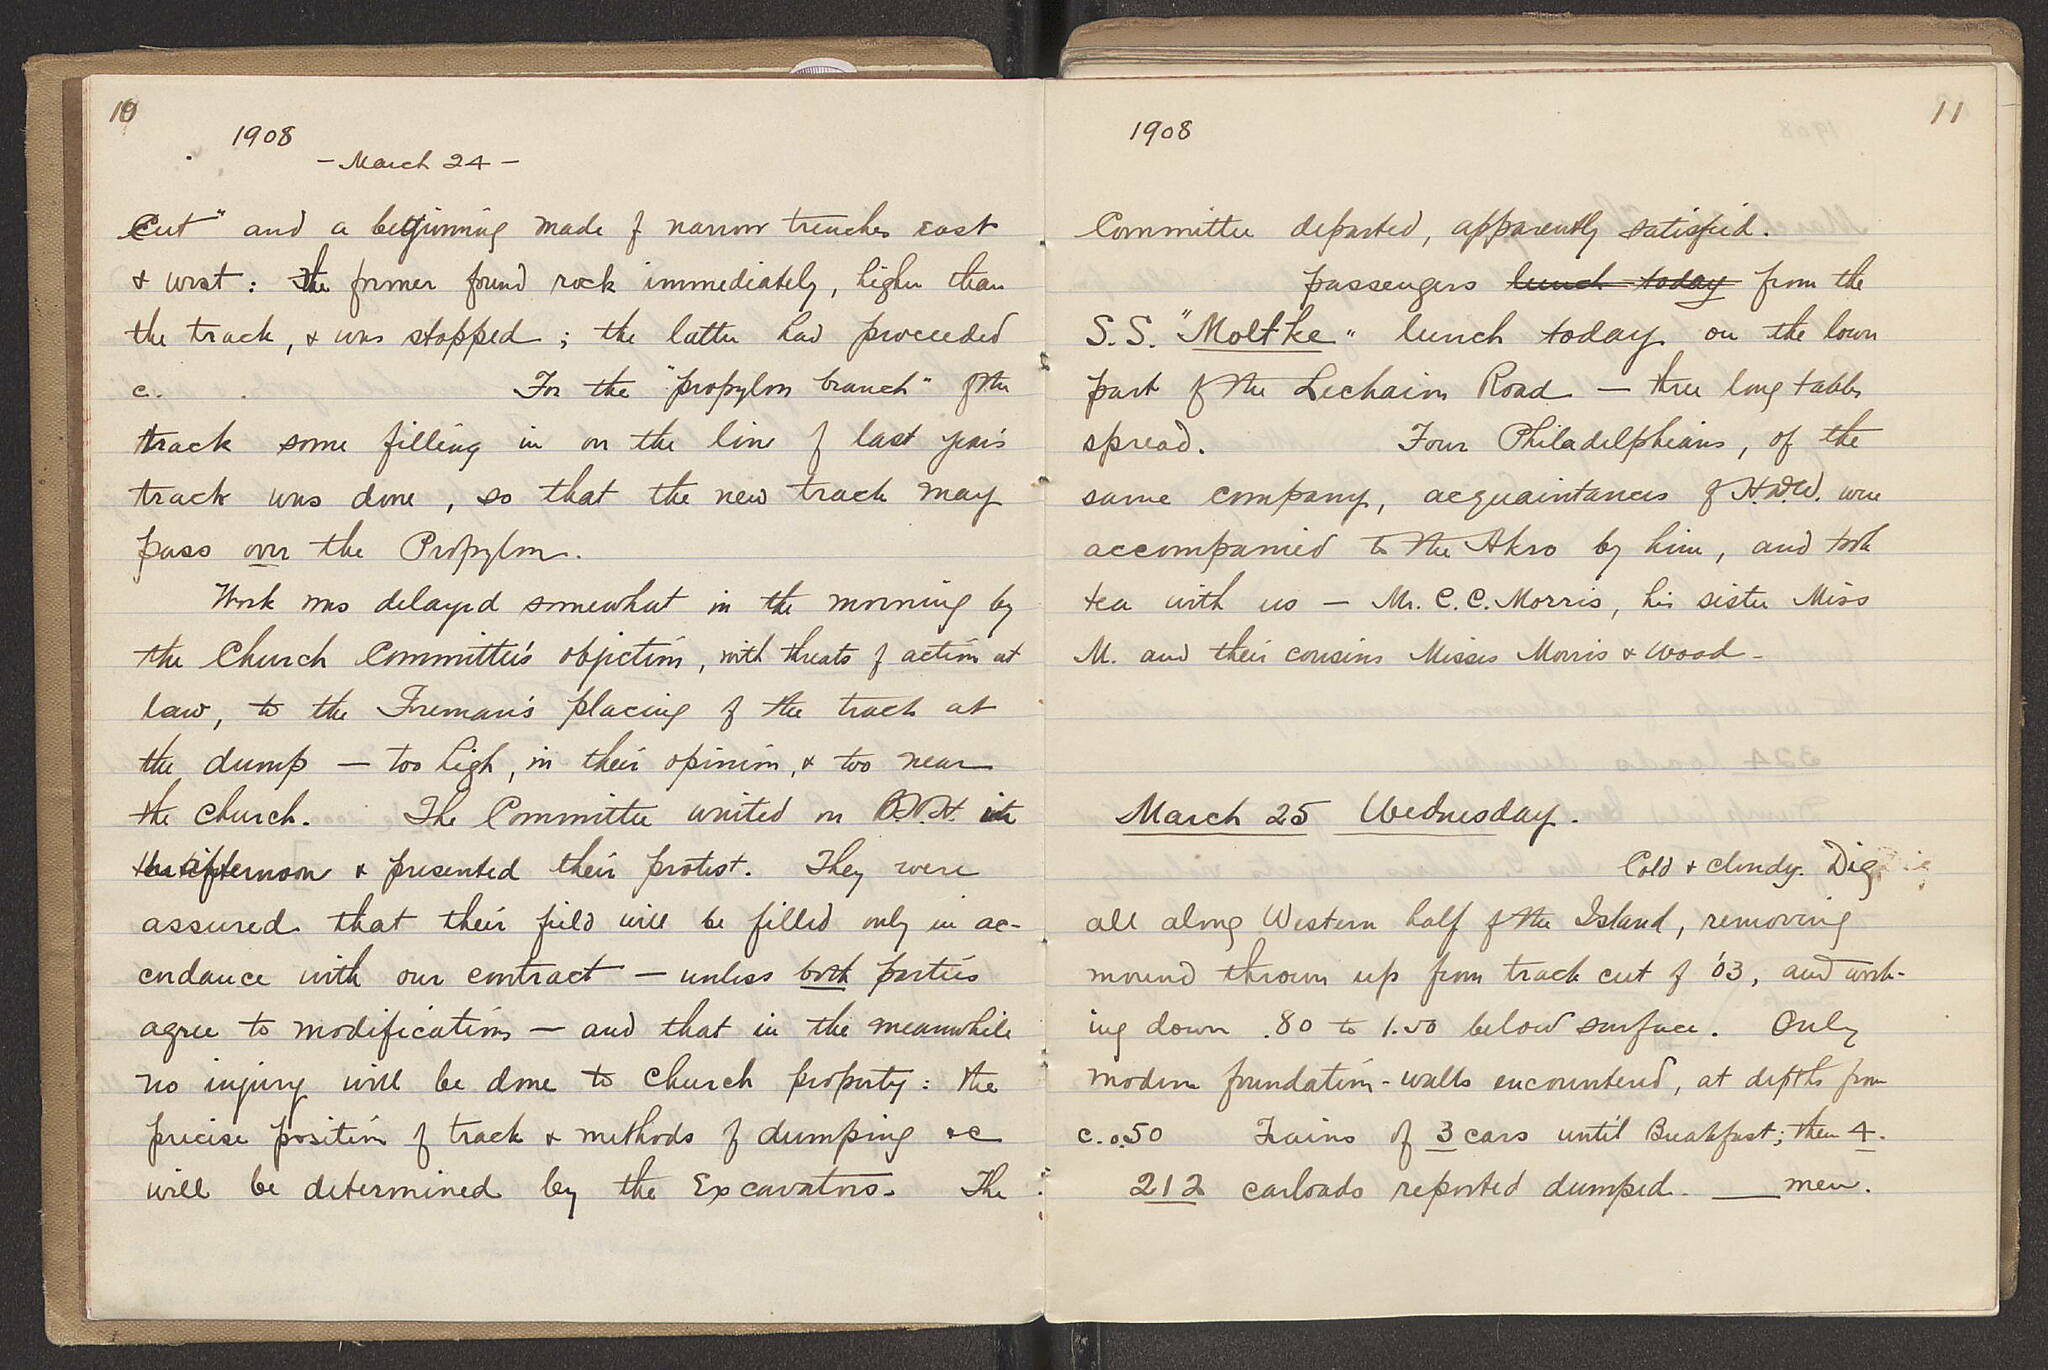 10
1908
- March 24 -
Cut" and a beginning made of narrow trenches east
& west: The former found rock immediately, higher than
the track, & was stopped; the latter had proceeded
c. For the "propylon branch" of the
track some filling in on the line of last year's
track was done, so that the new track may
pass over the Propylon.
Work was delayed somewhat in the morning by
the Church Committee's objection, with threats of action at
law, to the Foreman's placing of the track at
the dump — too high, in their opinion, & too near
the church. The Committee waited on B.H.H. in
the afternoon & presented their protest. They were
assured that their field will be filled only in ac-
cordance with our contract — unless both parties
agree to modifications — and that in the meanwhile
no injury will be done to church property: the
precise position of track & methods of dumping &c
will be determined by the Excavators. The
11
1908
Committee departed, apparently satisfied.
passengers lunch today from the
S.S. "Moltke" lunch today on the lower
part of the Lechaion Road — three long tables
spread. Four Philadelphians, of the
same company, acquaintances of H.D.W. were
accompanied to the Akro by him, and took
tea with us — Mr. C. C. Morris, his sister Miss
M. and their cousins Misses Morris & Wood -
March 25 Wednesday.
Cold & cloudy. Dig
all along Western half of the Island, removing
mound thrown up from track cut of '03, and work-
ing down .80 to 1.50 below surface. Only
modern foundation-walls encountered, at depths from
c. 0.50 Trains of 3 cars until Breakfast; then 4.
212 carloads reported dumped. ___ men.